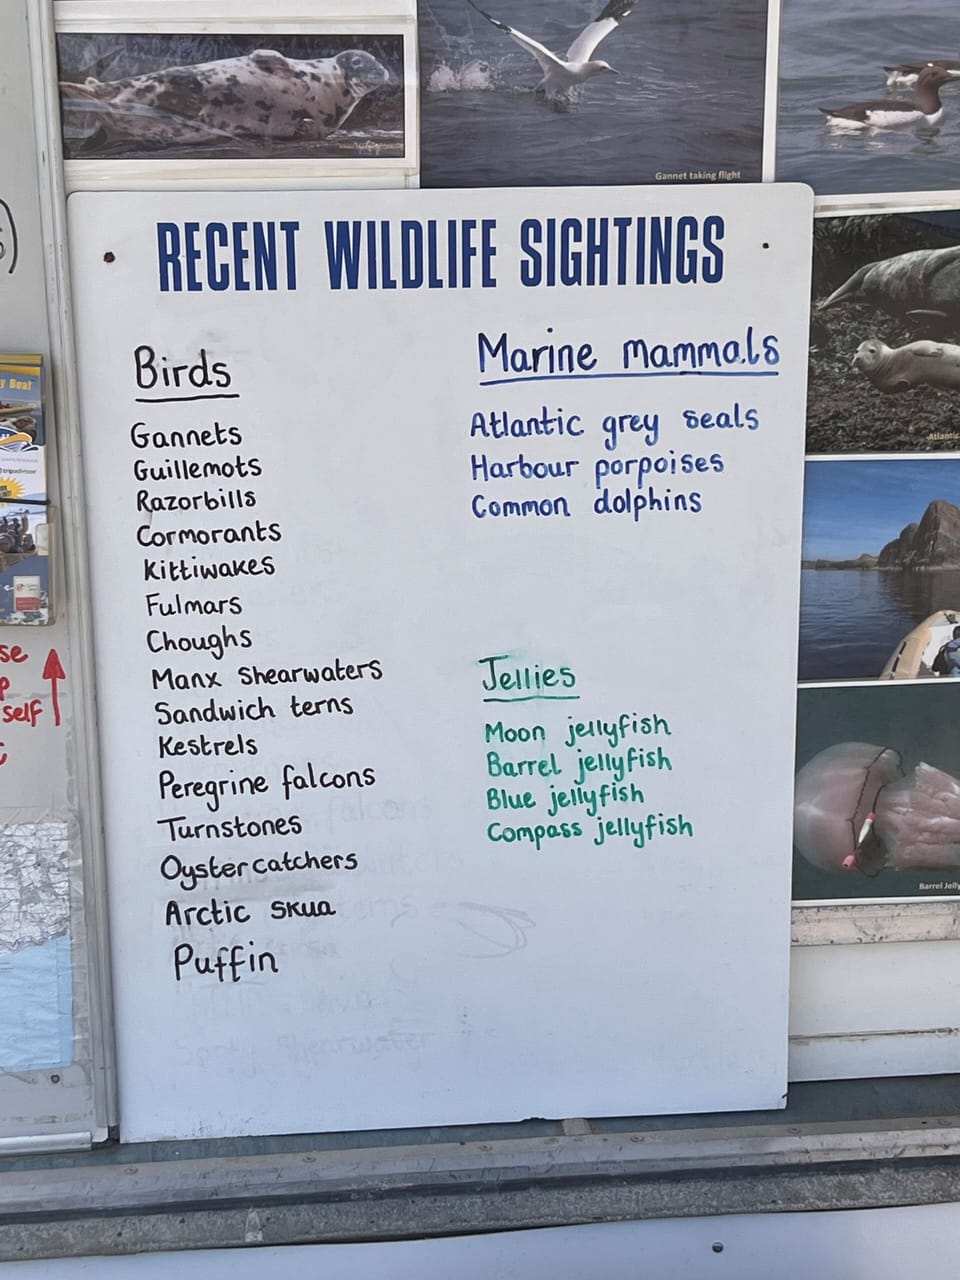 Gannet taking flight
RECENT WILDLIFE SIGHTINGS
Birds
Gannets
Guillemots
Razorbills
Cormorants
Kittiwakes
Fulmars
Choughs
Manx Shearwaters
Sandwich terns
Kestrels
Peregrine falcons
Turnstones
Oystercatchers
Arctic Skua
Puffin
Marine mammals
Atlantic grey seals
Harbour porpoises
Common dolphins
Jellies
Moon jellyfish
Barrel jellyfish
Blue jellyfish
Compass jellyfish
y Boat
tripadvisor
se
p
self
Atlantic
Barrel Jelly